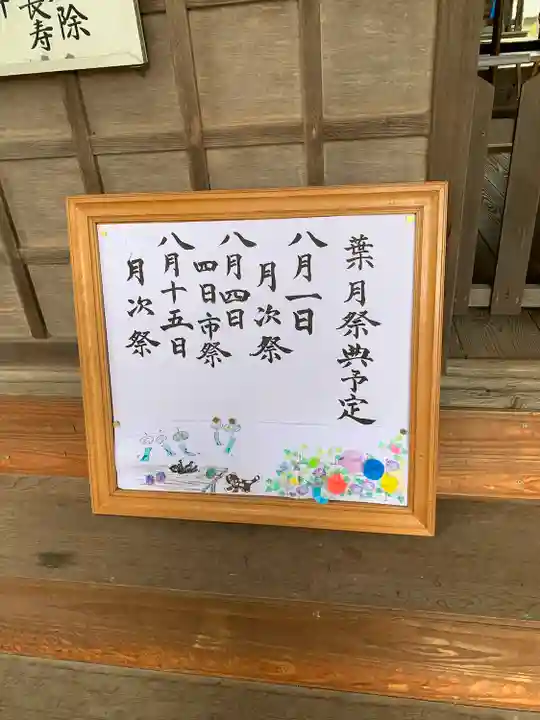 除
長寿
葉月祭典予定
八月一日
月次祭
八月四日
四日市祭
八月十五日
月次祭